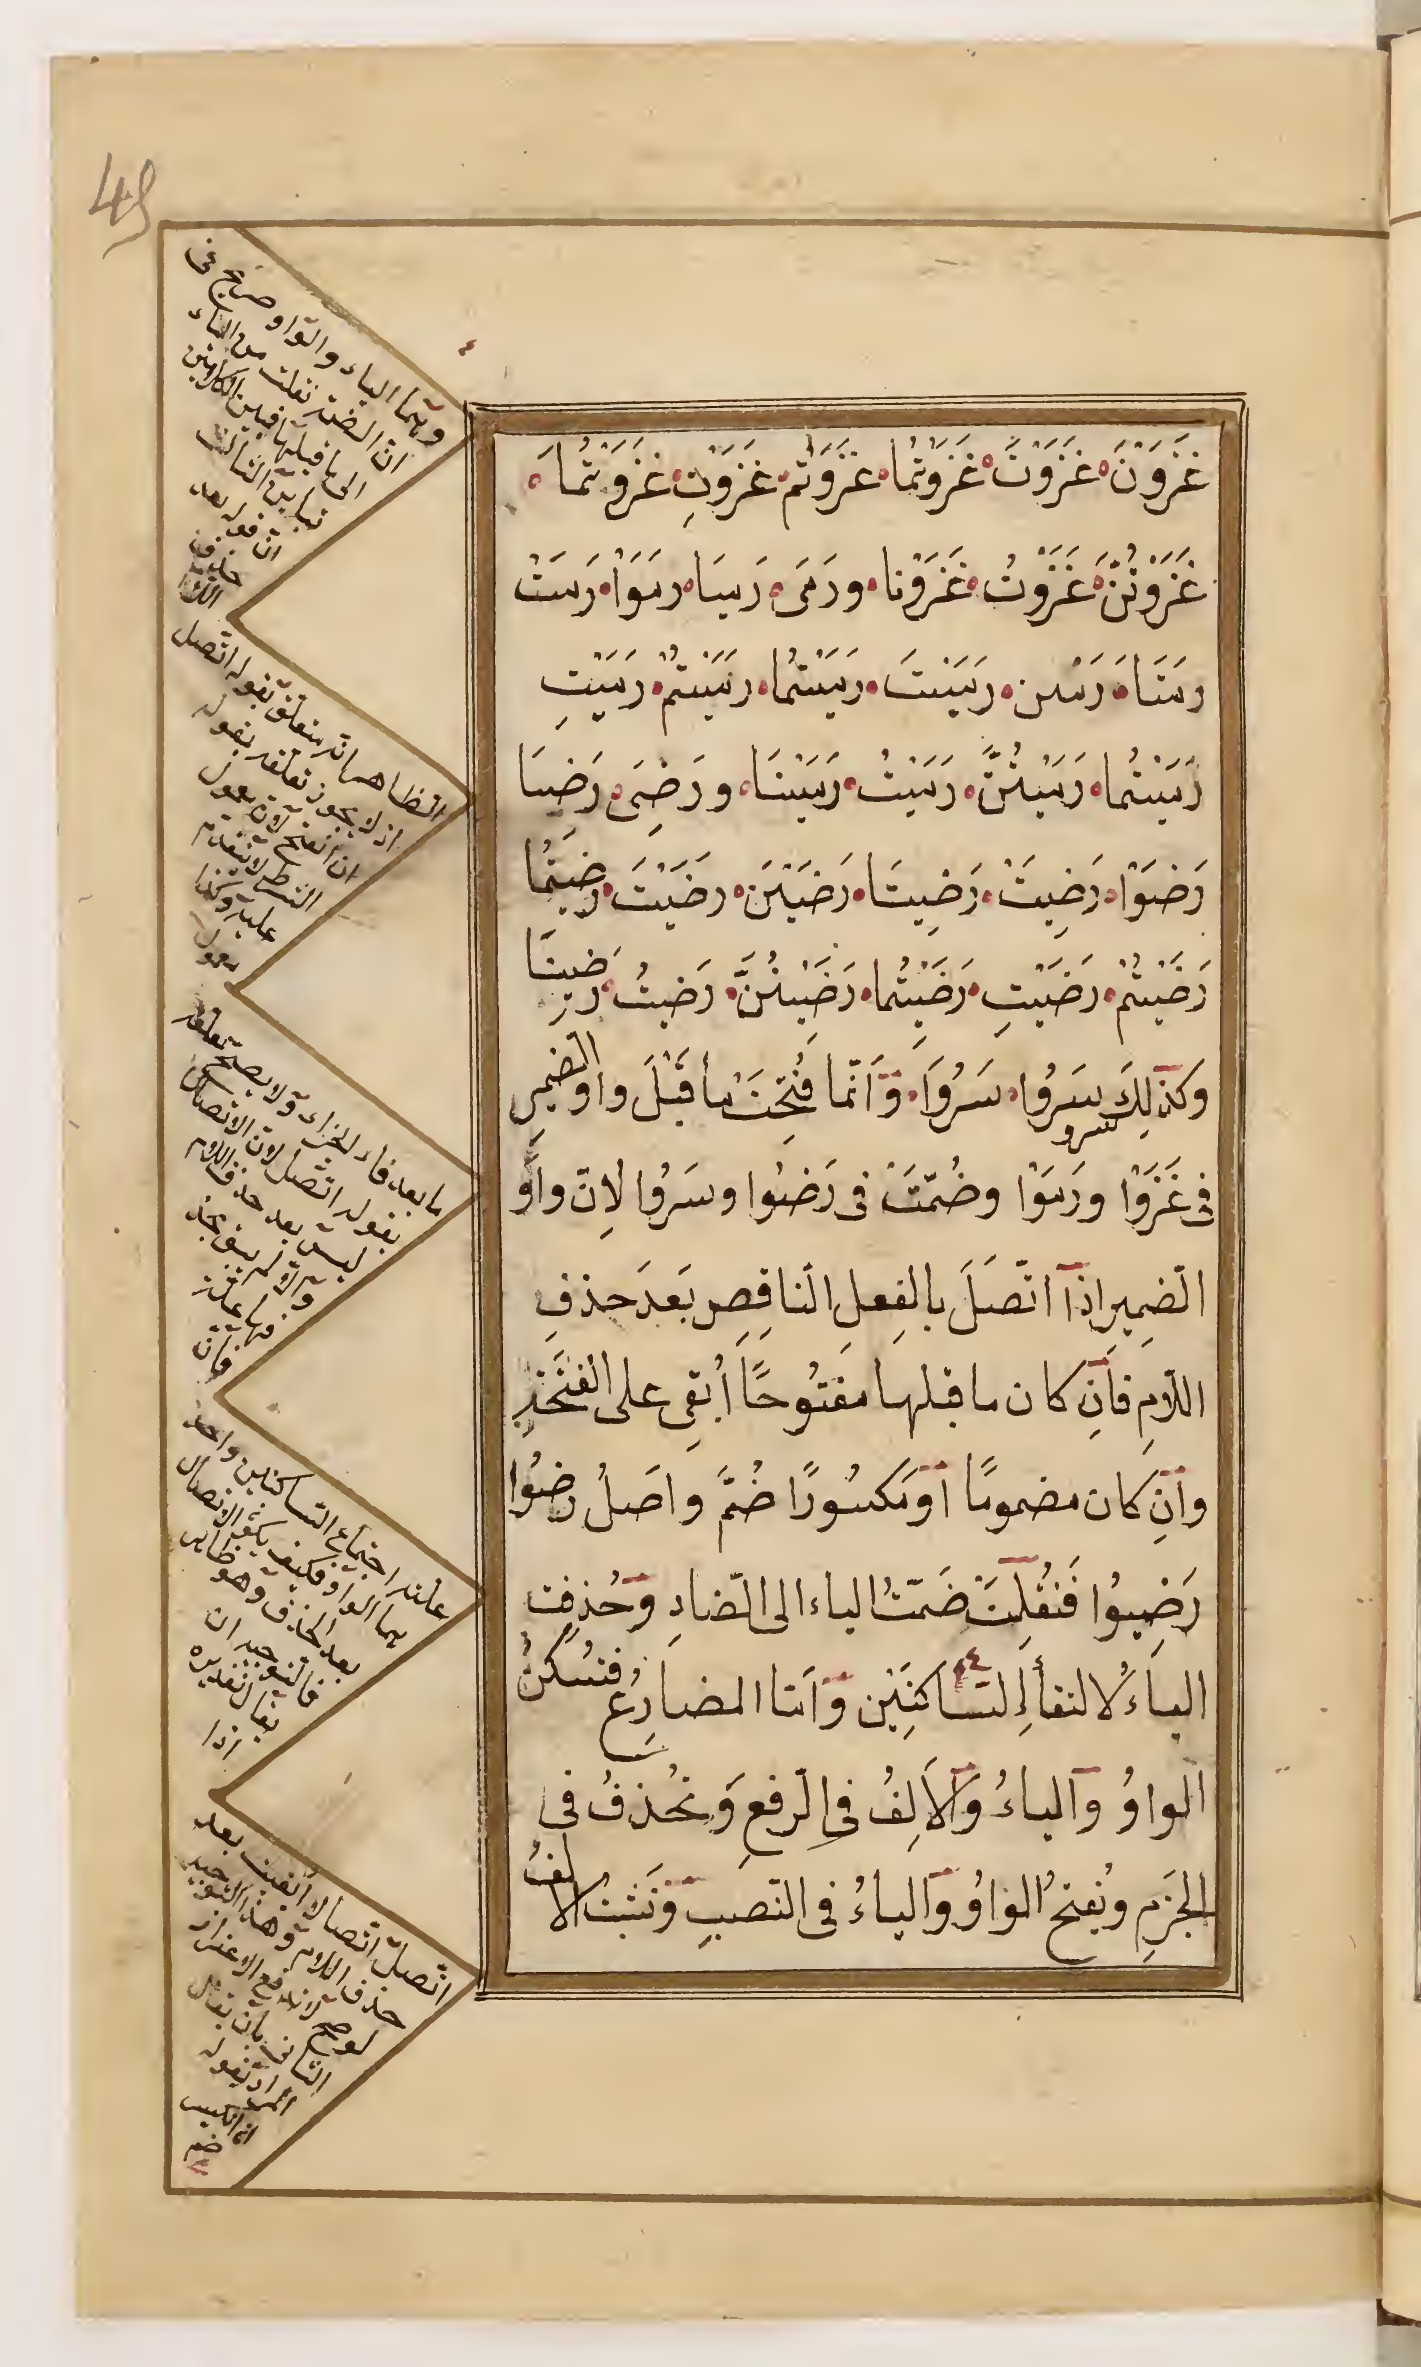 49
غَزَوْنَ غَزَوْتَ غَزَوْتُمَا غَزَوْتُمْ غَزَوْتِ غَزَوْتُمَا
غَزَوْتُنَّ غَزَوْتُ غَزَوْنا ورَمَى رَمَيَا رمَوْا رَمَتْ
رمَتَا رَمَيْن رَمَيْتَ رَمَيْتُمَا رَمَيْتُمْ رَمَيْتِ
رَمَيْتُما رَمَيْتُنَّ رَمَيْتُ رَمَيْنَا ورَضِىَ رَضِيَا
رَضُوْا رَضِيَتْ رَضِيَتَا رَضِيْنَ رضَيْتَ رضِيتُما
رَضَيْتُمْ رَضَيْتِ رَضَيْتُما رَضَيْتُنَّ رَضيتُ رَضِينَا
وكَذلِكَ سَرُوَ سَرُوَا سَرُوا وَاَنّما فُتِحَتْ مأ قَبْلَ واوالضمير
فى غَزَوْا ورَمَوْا وضُمّتَتْ فى رَضُوا وسَرُوا لِانّ واوُ
الضمِيرِ اِذا اتّصَلَ بالفِعلِ النّاقِصِ بَعدَ حذفِ
اللّامِ فاَنِ كان ما قبلها مَفتُوحًا اُبقِى على الفَتْحَةِ
واَنِ كان مضمومًا اَو مَكسُورًا ضُمَّ واصَلُ رضُوا
رَضِيُوا فَنُقِلَتْ ضَمّتُ الياء الى الضّادِ وَحُذِفت
الياءُ لالتقأِ السّاكنَيْن وَاَمّا المضارِعُ فتسكُنُ
الواوُ وَالياءُ وَالاَلِفُ فى الرّفعِ وَتُحْذفُ فى
الجَزمِ وتُفتحُ الواوُ وَالياءُ فى النّصبِ وَتَثبتُ الالِفُ
وهما الياء والواو صريح فى
انّ الضمّة نقلت من الياء
الى ما قبلها فبين الكلامين
تباين الثالث
انّ قوله بعد
حذف
اللام
الظاهر انّه متعلق بقوله اتّصل
اذ لا يجوز تعلقه بقوله
ان انفتح لانّ معمول
الشرط لا يتقدم
عليه وكذا
معمول
ما بعد فاء الجزاء ولا يصح تعلقه
بقوله اتّصل لانّ الاتصال
ليس بعد حذف اللام
والّا لم يبق لحذ
فها علّة
فانّ
علته اجتماع الساكنين واحد
هما الواو فكيف يكون الاتصال
بعد الحذف وهو ظاهر
فالتوجيه ان
يقال تقديره
اذا
اتّصل اتصالا الفيت بعد
حذف اللام وهذا التوجيه
لو صح لاندفع الاعتراض
الثانى بان يقال
المراد بقوله